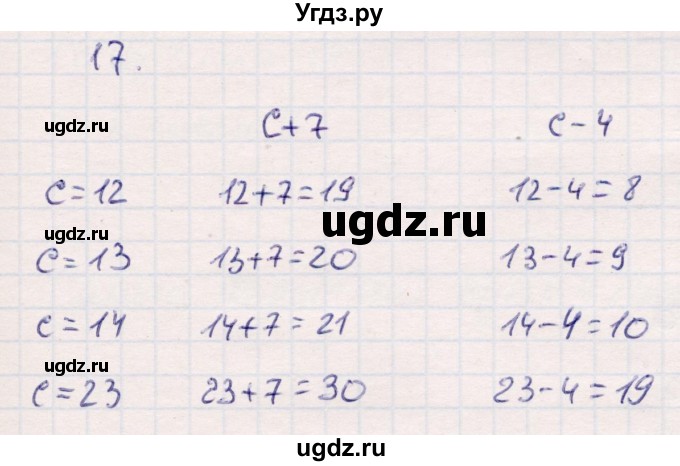 Угдз.ру
17.
ugdz.ru
c+7 c-4
c=12 12+7=19 12-4=8
ugdz.ru
ugdz.ru
c=13 13+7=20 13-4=9
c=14 14+7=21 14-4=10
ugdz.ru
c=23 23+7=30 23-4=19
ugdz.ru